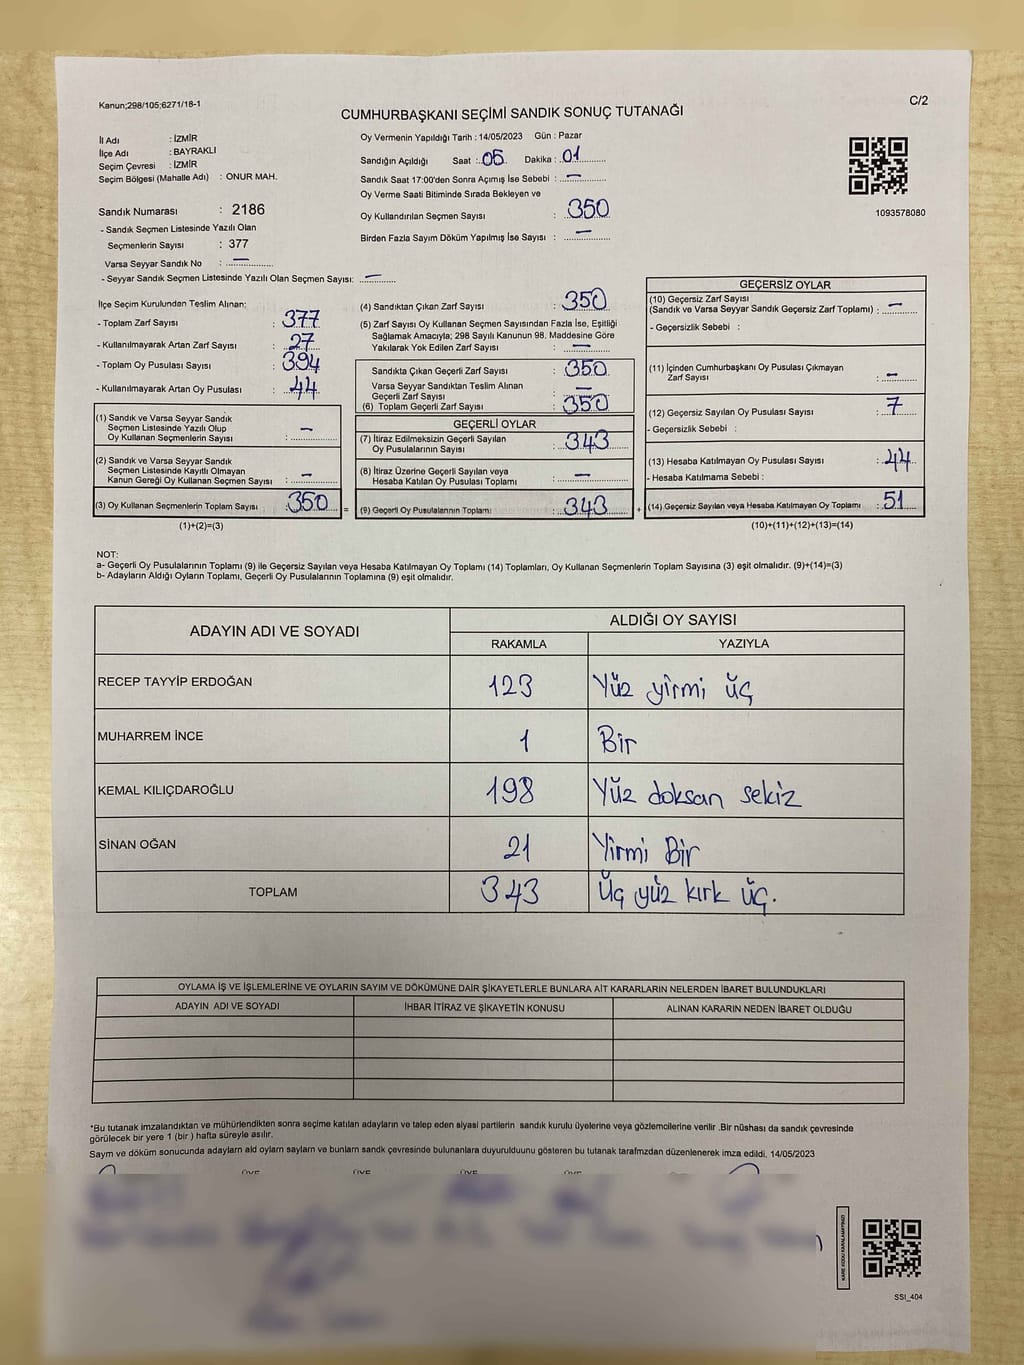 Kanun;298/105;6271/18-1
C/2
CUMHURBAŞKANI SEÇİMİ SANDIK SONUÇ TUTANAĞI
İl Adı : İZMİR
İlçe Adı : BAYRAKLI
Seçim Çevresi : İZMİR
Seçim Bölgesi (Mahalle Adı) : ONUR MAH.
Sandık Numarası : 2186
- Sandık Seçmen Listesinde Yazılı Olan
Seçmenlerin Sayısı : 377
Varsa Seyyar Sandık No : —
- Seyyar Sandık Seçmen Listesinde Yazılı Olan Seçmen Sayısı: —
Oy Vermenin Yapıldığı Tarih : 14/05/2023 Gün : Pazar
Sandığın Açıldığı Saat : 05 Dakika : 01
Sandık Saat 17:00'den Sonra Açımış İse Sebebi : —
Oy Verme Saati Bitiminde Sırada Bekleyen ve
Oy Kullandırılan Seçmen Sayısı : 350
Birden Fazla Sayım Döküm Yapılmış İse Sayısı : —
1093578080
İlçe Seçim Kurulundan Teslim Alınan:
- Toplam Zarf Sayısı : 377
- Kullanılmayarak Artan Zarf Sayısı : 27
- Toplam Oy Pusulası Sayısı : 394
- Kullanılmayarak Artan Oy Pusulası : 44
(1) Sandık ve Varsa Seyyar Sandık
Seçmen Listesinde Yazılı Olup
Oy Kullanan Seçmenlerin Sayısı : —
(2) Sandık ve Varsa Seyyar Sandık
Seçmen Listesinde Kayıtlı Olmayan
Kanun Gereği Oy Kullanan Seçmen Sayısı : —
(3) Oy Kullanan Seçmenlerin Toplam Sayısı : 350
(1)+(2)=(3)
(4) Sandıktan Çıkan Zarf Sayısı : 350
(5) Zarf Sayısı Oy Kullanan Seçmen Sayısından Fazla İse, Eşitliği
Sağlamak Amacıyla; 298 Sayılı Kanunun 98. Maddesine Göre
Yakılarak Yok Edilen Zarf Sayısı : —
Sandıkta Çıkan Geçerli Zarf Sayısı : 350
Varsa Seyyar Sandıktan Teslim Alınan
Geçerli Zarf Sayısı : —
(6) Toplam Geçerli Zarf Sayısı : 350
GEÇERLİ OYLAR
(7) İtiraz Edilmeksizin Geçerli Sayılan
Oy Pusulalarının Sayısı : 343
(8) İtiraz Üzerine Geçerli Sayılan veya
Hesaba Katılan Oy Pusulası Toplamı : —
= (9) Geçerli Oy Pusulalarının Toplamı : 343 +
GEÇERSİZ OYLAR
(10) Geçersiz Zarf Sayısı
(Sandık ve Varsa Seyyar Sandık Geçersiz Zarf Toplamı) : —
- Geçersizlik Sebebi :
(11) İçinden Cumhurbaşkanı Oy Pusulası Çıkmayan
Zarf Sayısı : —
(12) Geçersiz Sayılan Oy Pusulası Sayısı : 7
- Geçersizlik Sebebi :
(13) Hesaba Katılmayan Oy Pusulası Sayısı : 44
- Hesaba Katılmama Sebebi :
(14) Geçersiz Sayılan veya Hesaba Katılmayan Oy Toplamı : 51
(10)+(11)+(12)+(13)=(14)
NOT:
a- Geçerli Oy Pusulalarının Toplamı (9) ile Geçersiz Sayılan veya Hesaba Katılmayan Oy Toplamı (14) Toplamları, Oy Kullanan Seçmenlerin Toplam Sayısına (3) eşit olmalıdır. (9)+(14)=(3)
b- Adayların Aldığı Oyların Toplamı, Geçerli Oy Pusulalarının Toplamına (9) eşit olmalıdır.
ADAYIN ADI VE SOYADI
ALDIĞI OY SAYISI
RAKAMLA YAZIYLA
RECEP TAYYİP ERDOĞAN 123 Yüz yirmi üç
MUHARREM İNCE 1 Bir
KEMAL KILIÇDAROĞLU 198 Yüz doksan sekiz
SİNAN OĞAN 21 Yirmi Bir
TOPLAM 343 Üç yüz kırk üç.
OYLAMA İŞ VE İŞLEMLERİNE VE OYLARIN SAYIM VE DÖKÜMÜNE DAİR ŞİKAYETLERLE BUNLARA AİT KARARLARIN NELERDEN İBARET BULUNDUKLARI
ADAYIN ADI VE SOYADI İHBAR İTİRAZ VE ŞİKAYETİN KONUSU ALINAN KARARIN NEDEN İBARET OLDUĞU
*Bu tutanak imzalandıktan ve mühürlendikten sonra seçime katılan adayların ve talep eden siyasi partilerin sandık kurulu üyelerine veya gözlemcilerine verilir .Bir nüshası da sandık çevresinde
görülecek bir yere 1 (bir ) hafta süreyle asılır.
Sayım ve döküm sonucunda adayların ald oyların sayların ve bunların sandık çevresinde bulunanlara duyurulduunu gösteren bu tutanak tarafmzdan düzenlenerek imza edildi. 14/05/2023
ÜYE ÜYE ÜYE ÜYE
KARE KODU KARALAMAYINIZ!
SSI_404